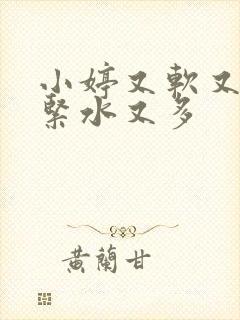 小婷又軟又
緊水又多
黃蘭甘